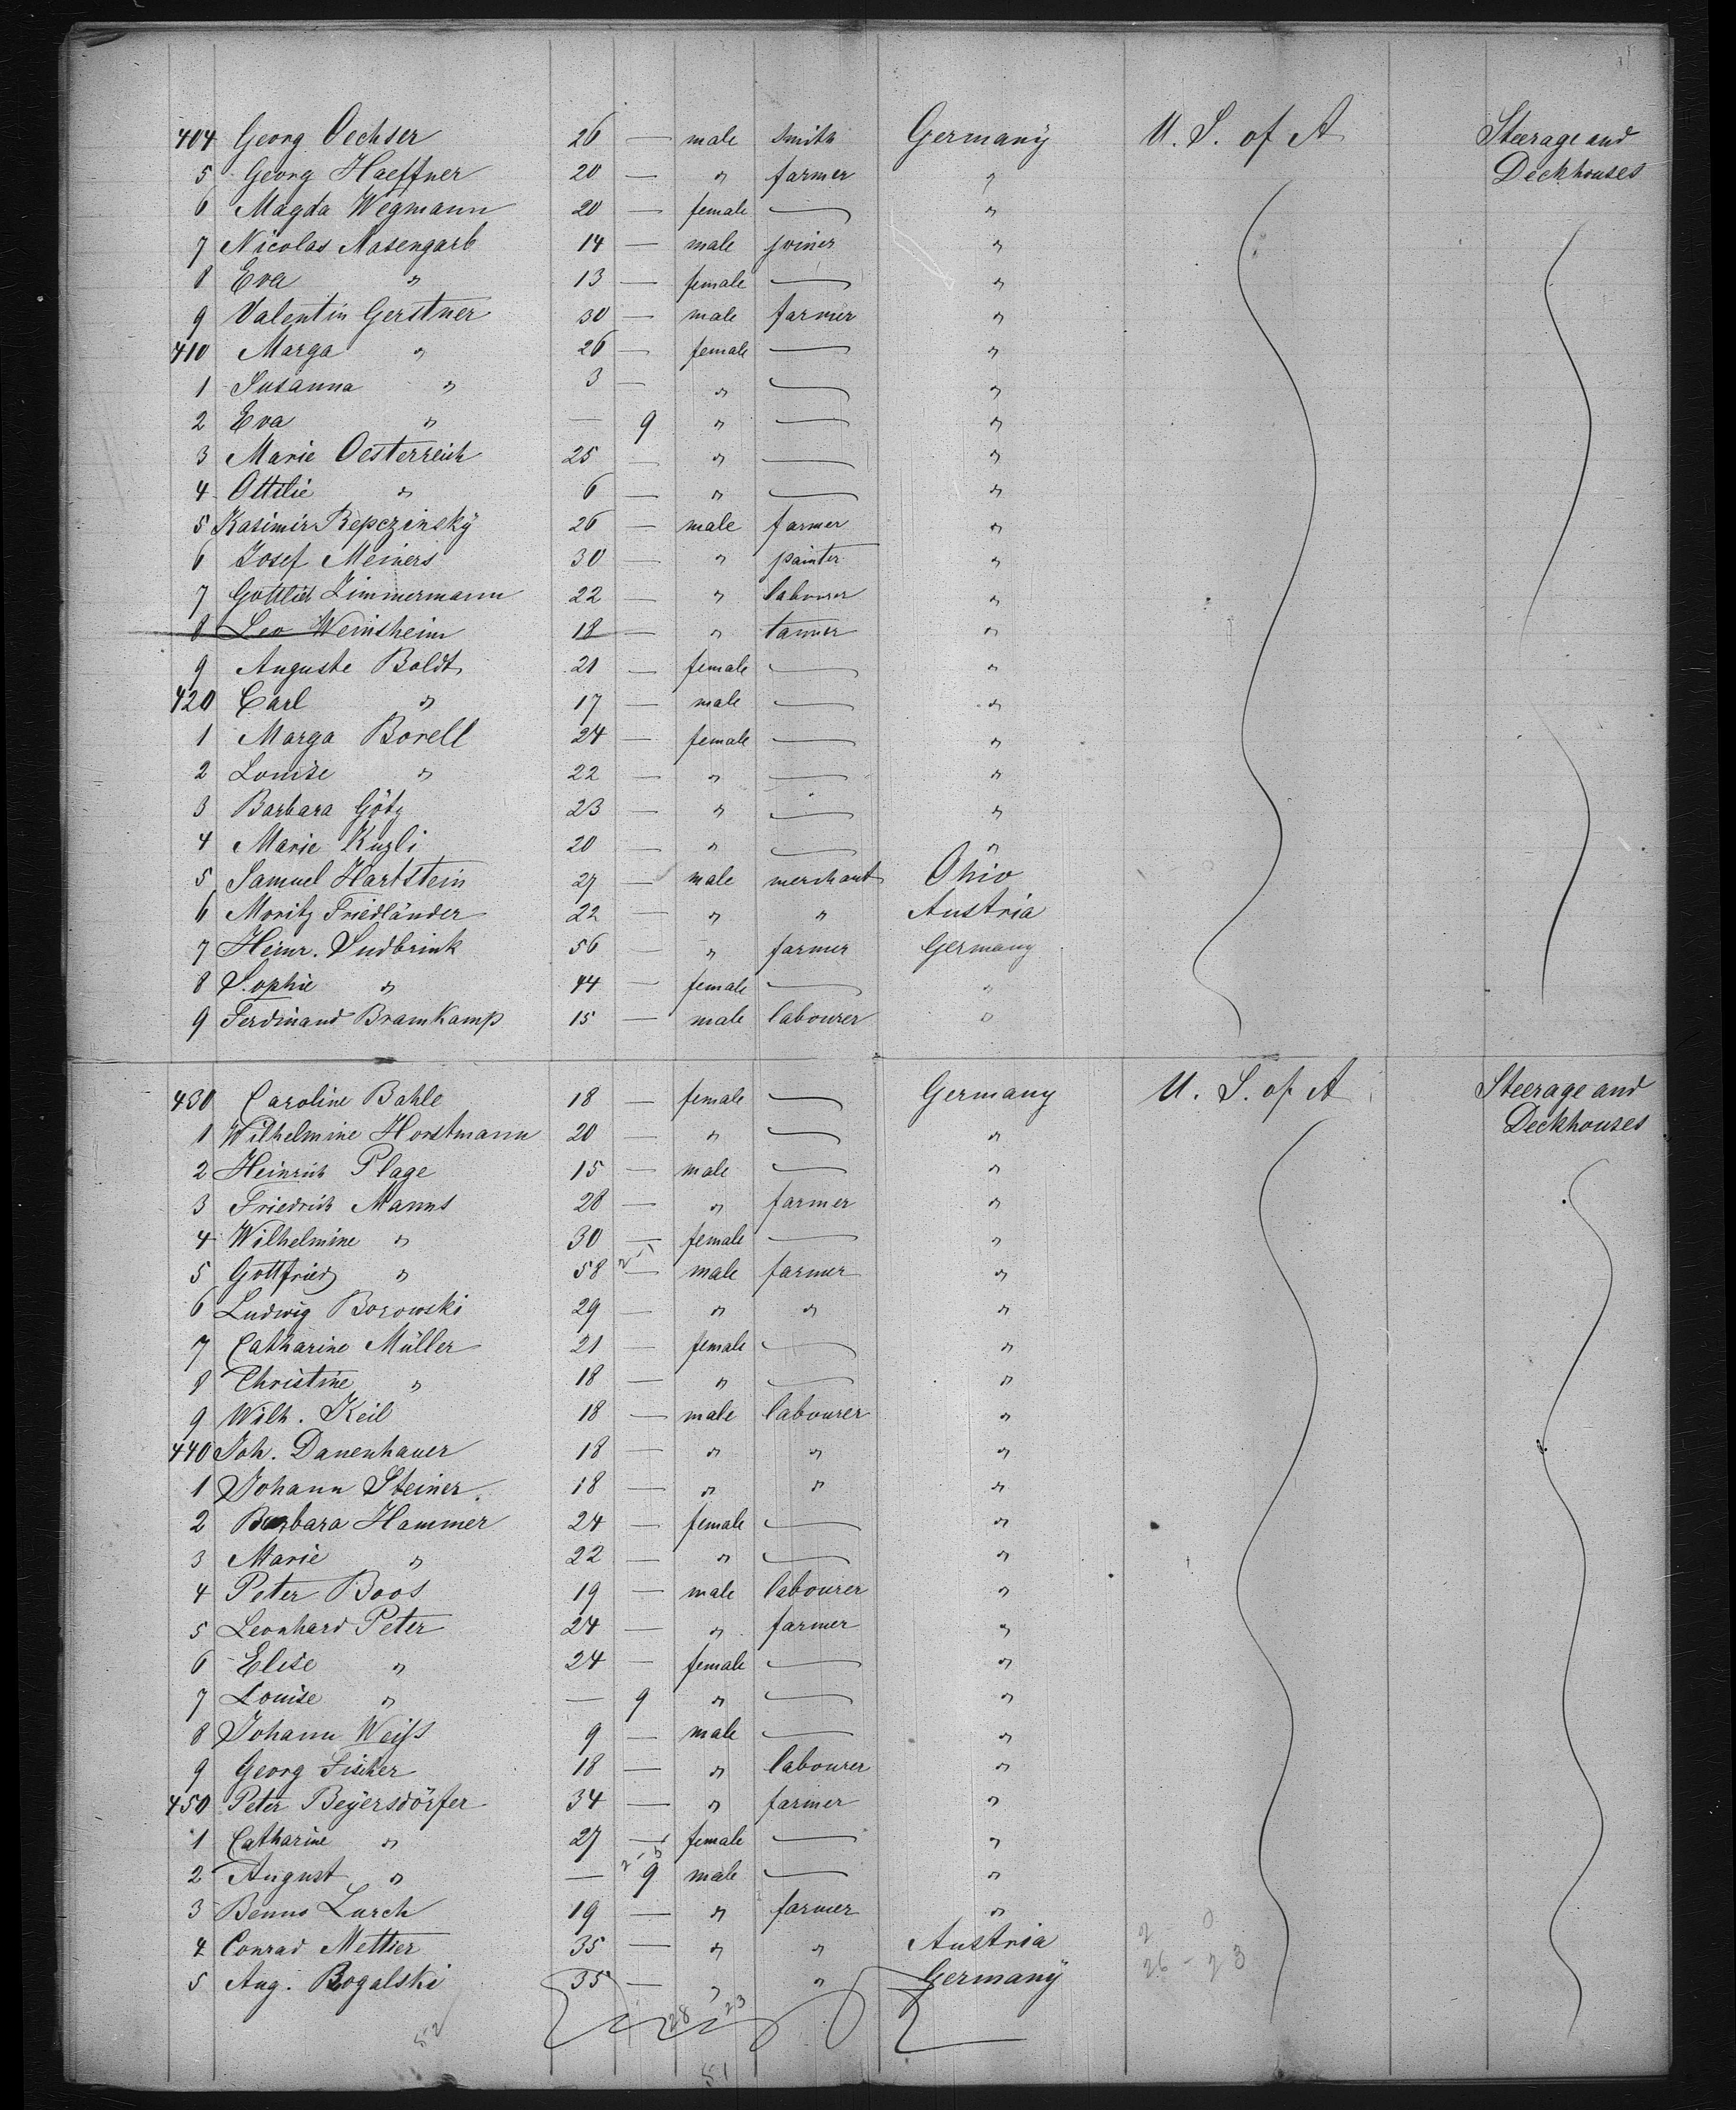 404 Georg Oechser 26 — male smith Germany U. S. of A Steerage and
5 Georg Haeffner 20 — " farmer " Deckhouses
6 Magda Wegmann 20 — female — "
7 Nicolas Masengarb 14 — male joiner "
8 Eva " 13 — female — "
9 Valentin Gerstner 30 — male farmer "
410 Marga " 26 — female — "
1 Susanna " 3 — " — "
2 Eva " — 9 " — "
3 Marie Oesterreich 25 — " — "
4 Ottilie " 6 — " — "
5 Kasimir Repczinsky 26 — male farmer "
6 Josef Meiners 30 — " painter "
7 Gottlieb Zimmermann 22 — " labourer "
8 Leo Weinsheim 18 — " tanner "
9 Auguste Boldt 21 — female — "
420 Carl " 17 — male — "
1 Marga Borell 24 — female — "
2 Louise " 22 — " — "
3 Barbara Götz 23 — " — "
4 Marie Kuzli 20 — " — "
5 Samuel Hartstein 27 — male merchant Ohio
6 Moritz Friedländer 22 — " " Austria
7 Heinr. Sudbrink 56 — " farmer Germany
8 Sophie " 44 — female — "
9 Ferdinand Bramkamp 15 — male labourer "
430 Caroline Bahle 18 — female — Germany U. S. of A Steerage and
1 Wilhelmine Horstmann 20 — " — " Deckhouses
2 Heinrich Plage 15 — male — "
3 Friedrich Manns 28 — " farmer "
4 Wilhelmine " 30 — female — "
5 Gottfried " 58 — male farmer "
6 Ludwig Borowski 29 — " " "
7 Catharine Müller 21 — female — "
8 Christine " 18 — " — "
9 Wilh. Keil 18 — male labourer "
440 Joh. Danenhauer 18 — " " "
1 Johann Steiner 18 — " " "
2 Barbara Hammer 24 — female — "
3 Marie " 22 — " — "
4 Peter Boos 19 — male labourer "
5 Leonhard Peter 24 — " farmer "
6 Elise " 24 — female — "
7 Louise " — 9 " — "
8 Johann Weiſs 9 — male — "
9 Georg Fischer 18 — " labourer "
450 Peter Beÿersdörfer 34 — " farmer "
1 Catharine " 27 — female — "
2 August " — 9 male — "
3 Benno Lurch 19 — " farmer "
4 Conrad Mettier 35 — " " Austria 2 - 0
5 Aug. Rogalski 35 — " " Germanÿ 26 - 23
28 23
52
51